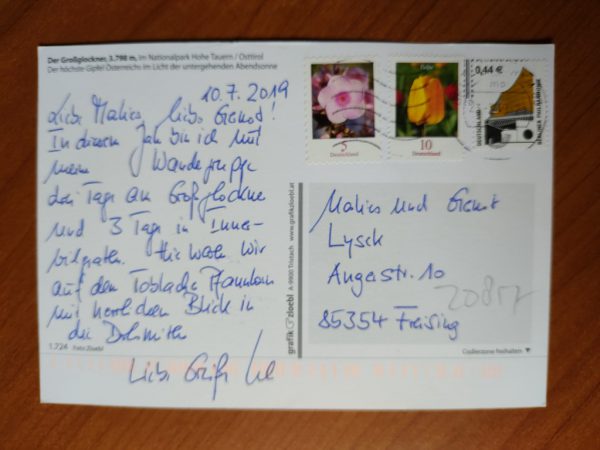 Der Großglockner, 3.798 m, im Nationalpark Hohe Tauern / Osttirol
Der höchste Gipfel Österreichs im Licht der untergehenden Abendsonne
10.7.2019
Liebe Marlies, lieber Gernot!
In diesem Jahr bin ich mit
meiner Wandergruppe
drei Tage am Großglockner
und 3 Tage in Inner-
villgraten. Hier waren wir
auf dem Toblacher Pfannhorn
mit herrlichem Blick in
die Dolomiten
Liebe Grüße
1.724 Foto Zloebl
grafik zloebl
A-9900 Tristach www.grafikzloebl.at
5
Deutschland
Tulpe
10
Deutschland
0,44 €
DEUTSCHLAND
BERLINER PHILHARMONIE
Marlies und Gernot
Lysek
Angerstr. 10
85354 Freising
Codierzone freihalten